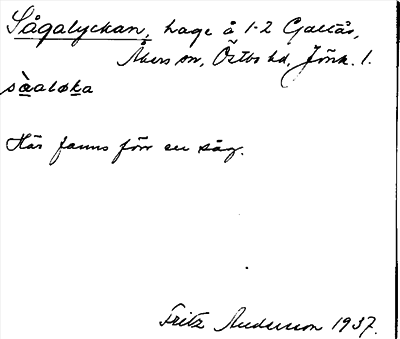 Sågalyckan, hage å 1-2 Galtås,
Åkers sn, Östbo hd, Jönk. l.
sàaløka
Här fanns förr en såg.
Fritz Anderson 1937.